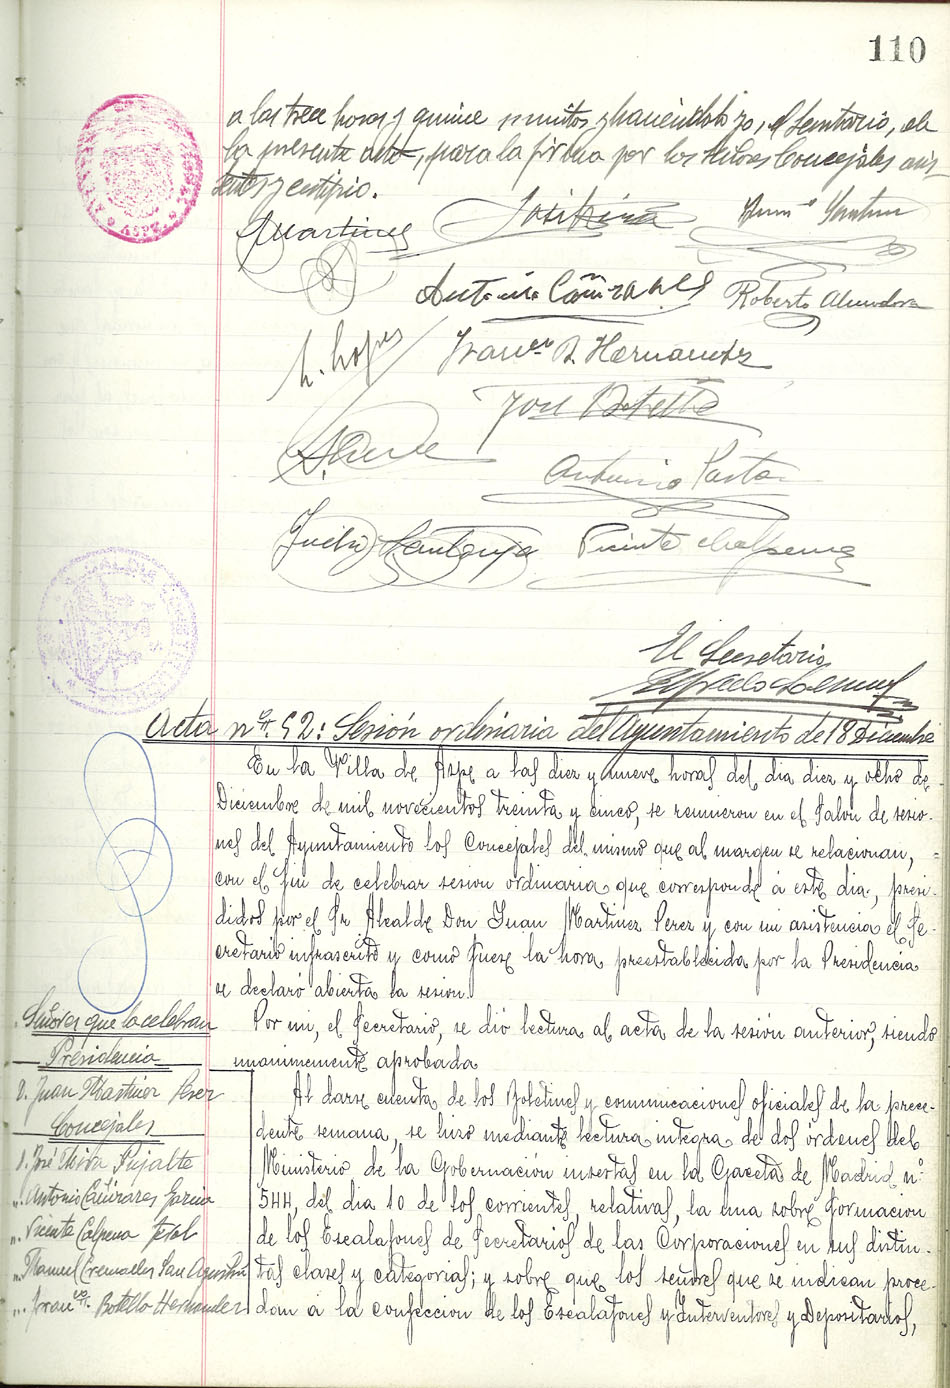 110
a las trece horas y quince minutos y haciendolo yo, el Secretario, de
la presente acta, para la firma por los señores Concejales asis-
tentes y certifico.
JMartinez
Antonio Cañizares Roberto Almodova
L. Lopez Franco. B. Hernandez
José Botella
Antonio Pastor
Santonja Vicente Calpena
El Secretario
Acta nº. 52: Sesión ordinaria del Ayuntamiento de 18 Diciembre
En la Villa de Aspe a las diez y nueve horas del dia diez y ocho de
Diciembre de mil novecientos treinta y cinco, se reunieron en el Salon de sesio-
nes del Ayuntamiento los Concejales del mismo que al margen se relacionan,
con el fin de celebrar sesion ordinaria que corresponde á este dia, presi-
didos por el Sr Alcalde Don Juan Martinez Perez y con mi asistencia el Se-
cretario infrascrito y como fuese la hora preestablecida por la Presidencia
se declaró abierta la sesion.
Por mi, el Secretario, se dió lectura al acta de la sesión anterior, siendo
unanimemente aprobada
Al darse cuenta de los Boletines y comunicaciones oficiales de la prece-
dente semana, se hizo mediante lectura integra de dos órdenes del
Ministerio de la Gobernación insertas en la Gaceta de Madrid nº
544, del dia 10 de los corrientes, relativas, la una sobre formacion
de los Escalafones de Secretarios de las Corporaciones en sus distin-
tas clases y categorias; y sobre que los señores que se indican proce-
dan á la confeccion de los Escalafones y Interventores y Depositarios,
Señores que la celebran
Presidencia
D. Juan Martinez Perez
Concejales
D. José Mira Pujalte
". Antonio Cañizares Garcia
". Vicente Calpena
". Manuel Cremades San Agustin
". Franco. Botella Hernandez